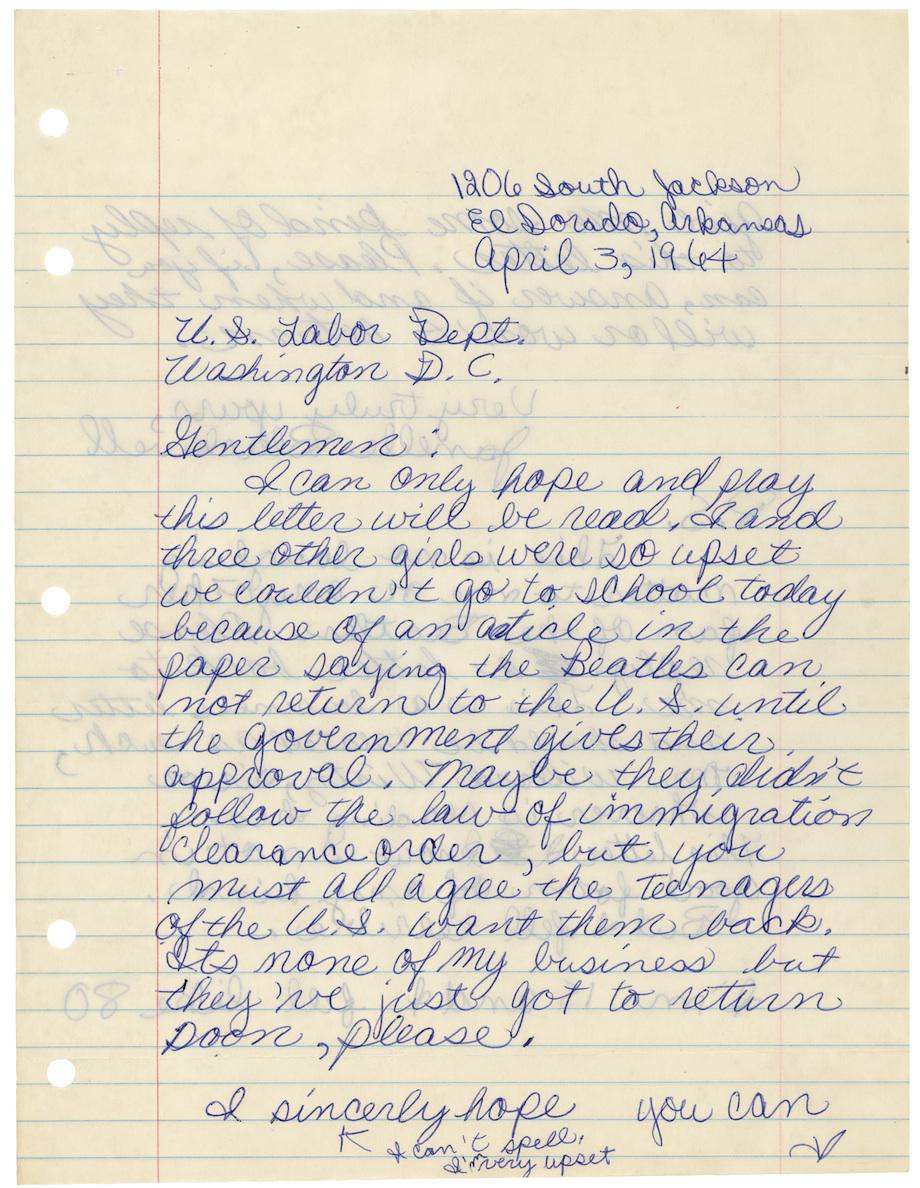 1206 South Jackson
El Dorado, Arkansas
April 3, 1964
U.S. Labor Dept.
Washington D.C.
Gentlemen:
I can only hope and pray
this letter will be read. I and
three other girls were so upset
we couldn't go to school today
because of an article in the
paper saying the Beatles can
not return to the U.S. until
the government gives their
approval. Maybe they didn't
follow the law of immigration
clearance order, but you
must all agree the teenagers
of the U.S. want them back.
Its none of my business but
they've just got to return
soon, please.
I sincerly hope you can
I can't spell.
I'm very upset